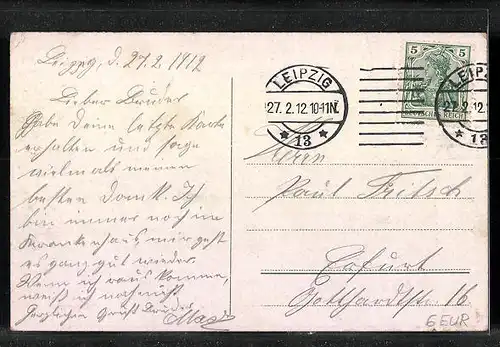 Leipzig, d. 27.2.1912
Lieber Bruder
Habe Deine letzte Karte
erhalten und sage
vielmals meinen
besten Dank. Ich
bin immer noch im
Krankenhaus, mir geht
es ganz gut wieder.
Wenn ich raus komme,
weiß ich noch nicht
Herzlichen Gruß Bruder
Max
LEIPZIG
27. 2. 12. 10-11 N.
* 13 *
5 5
DEUTSCHES REICH
LEIPZIG
27. 2. 12
* 13
Herrn
Paul Fritsch
Erfurt
Gotthardtstr. 16
6 EUR